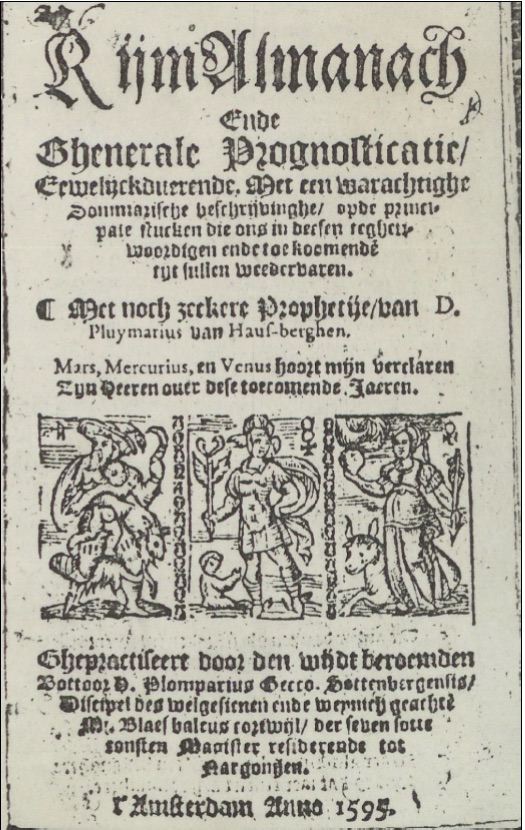 Rijm Almanach
Ende
Ghenerale Prognosticatie/
Eewelijckduerende, Met een warachtighe
Dommarische beschrijvinghe/ opde princi-
pale stucken die ons in deesen teghen-
woordigen ende toekoomende
tijt sullen weedervaren.
¶ Met noch zeekere Prophetije/van D.
Pluymarius van Hauf-berghen.
Mars, Mercurius, en Venus hoort mijn verclaren
Zijn Heeren over dese toecomende Jaeren.
Ghepractiseert door den wijdt beroemden
Bottoor D. Plomparius Gecco. Sottenbergensis/
Discipel des welgesienen ende weynich geachtē
Mr. Blaes balcus cortwijl/ der seven sotte
consten Magister residerende tot
Nargonien.
t'Amsterdam Anno 1595.